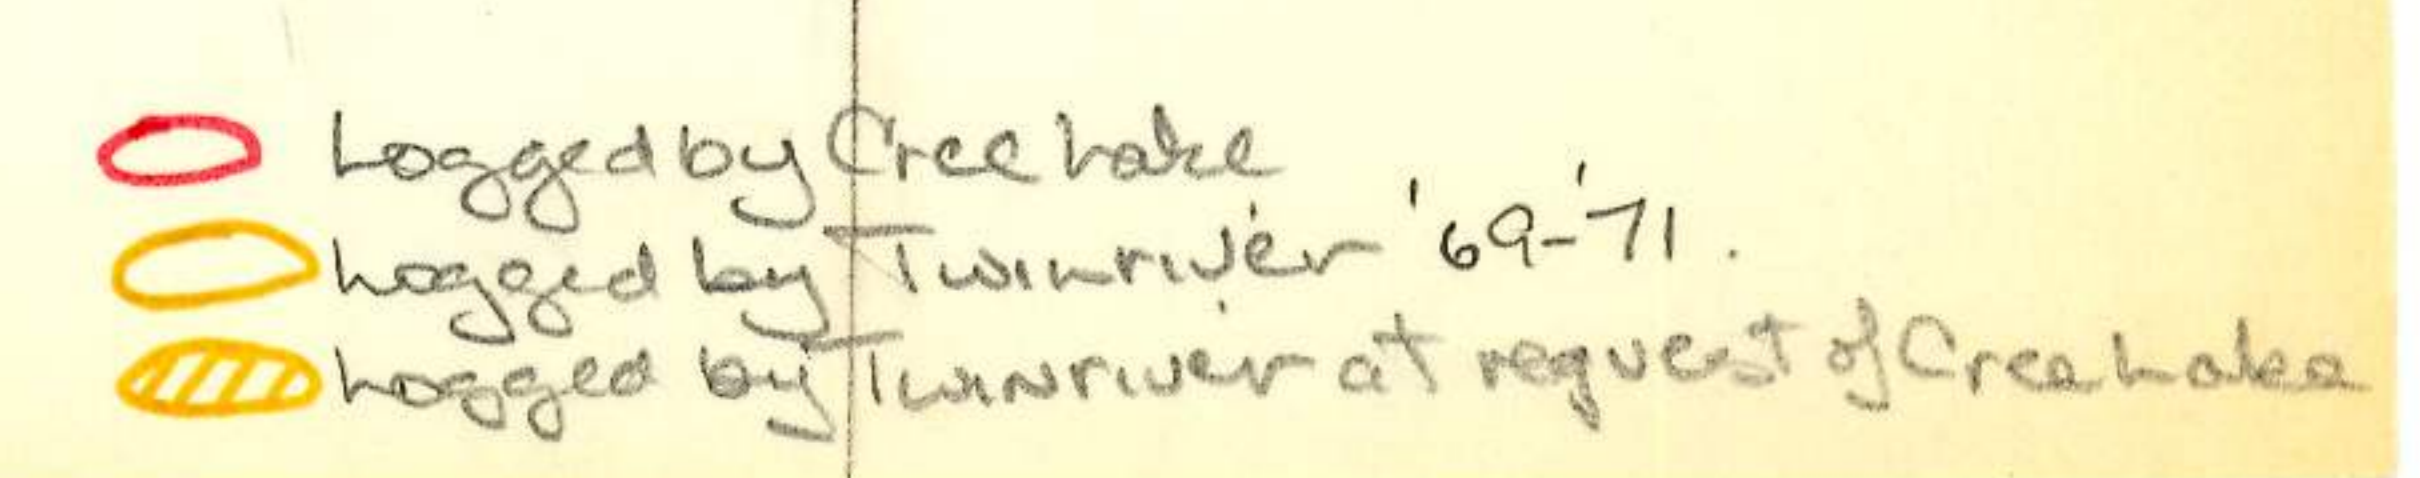 Logged by Cree Lake
Logged by Twinriver '69-'71.
Logged by Twinriver at request of Cree Lake